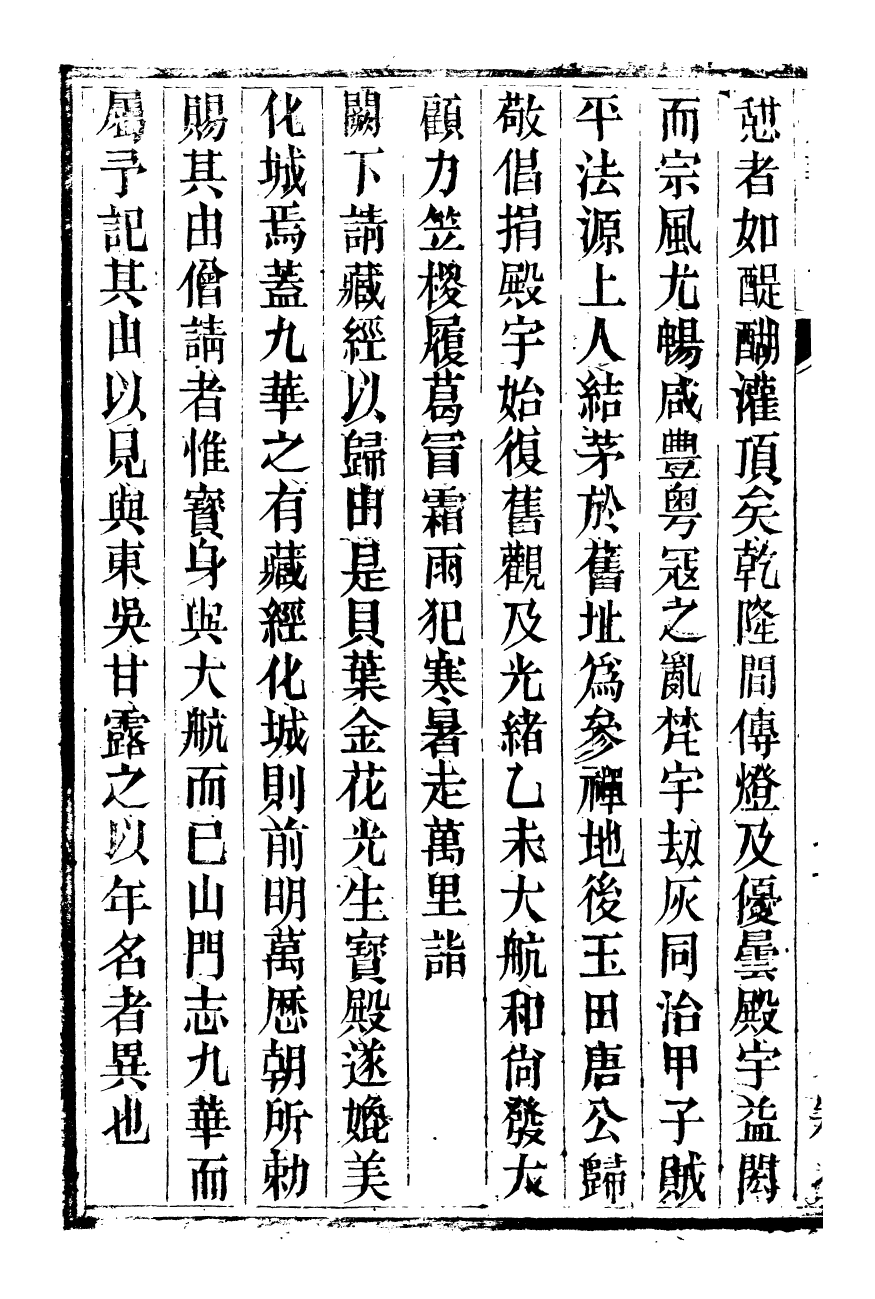 憇者如醍醐灌頂矣乾隆間傳燈及優曇殿宇益閎
而宗風尤暢咸豐粤冦之亂梵宇刼灰同治甲子賊
平法源上人結茅於舊址爲參禪地後玉田唐公歸
敬倡捐殿宇始復舊觀及光緒乙未大航和尙發大
願力笠椶履葛冒霜雨犯寒暑走萬里詣
闕下請藏經以歸由是貝葉金花光生寶殿遂媲美
化城焉蓋九華之有藏經化城則前明萬厯朝所勅
賜其由僧請者惟寶身與大航而已山門志九華而
屬予記其由以見與東吳甘露之以年名者異也